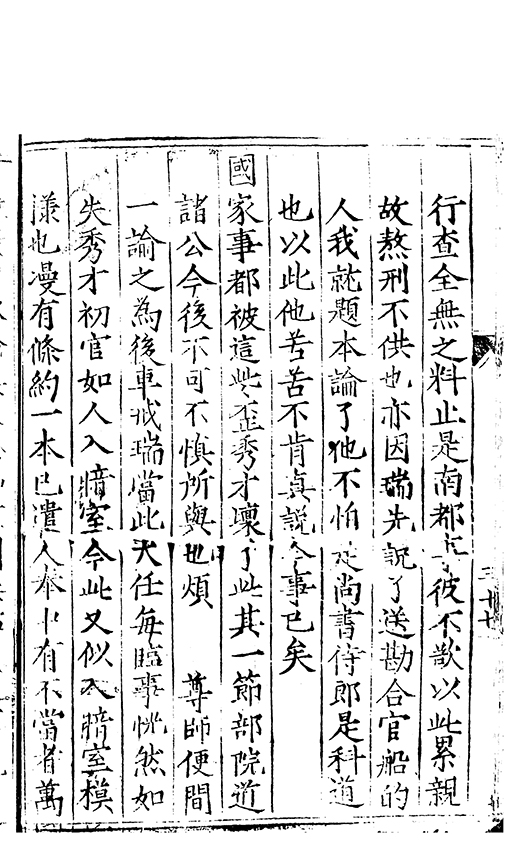 行查全無之料止是南都士彼不欲以此累親
故熬刑不供也亦因瑞先説了送勘合官船的
人我就題本論了他不怕是尚書侍郎是科道
也以此他苦苦不肯真説今事已矣
國家事都被這些歪秀才壞了此其一節部院道
諸公今後不可不慎所與也煩 尊師便間
一諭之為後車戒瑞當此大任每臨事恍然如
失秀才初官如人入暗室今此又似入暗室模
漾也漫有條約一本已遣人奉上有不當者萬
三十七